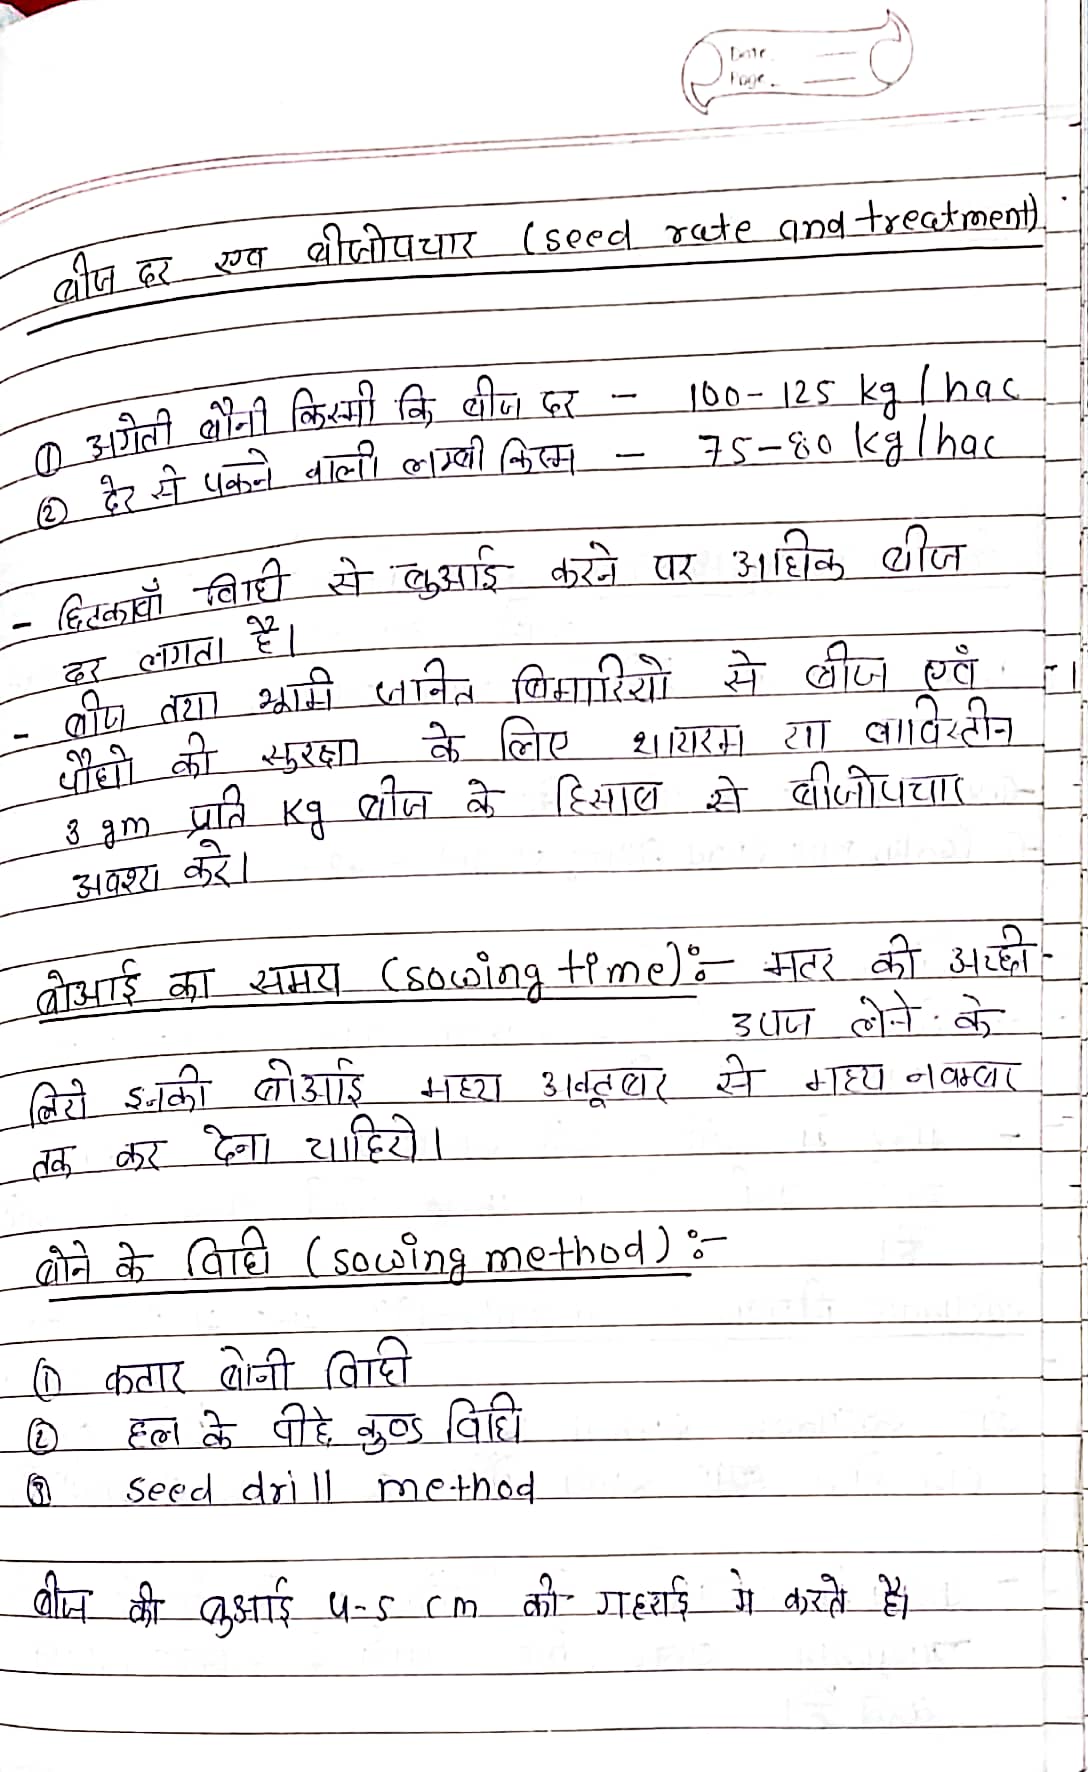 Date.
Page.
बीज दर एव बीजोपचार (seed rate and treatment)
① अगेती बौनी किस्मी कि बीज दर – 100-125 kg/hac
② देर से पकने वाली लाम्बी किस्म – 75-80 kg/hac
- छिटकावाँ विधी से बुआई करने पर अधिक बीज
दर लगता है।
- बीज तथा भूमी जनित बिमारियो से बीज एवं
पौधो की सुरक्षा के लिए थायरम या बाविस्तीन
3 gm प्रति kg बीज के हिसाब से बीजोपचार
अवश्य करे।
बोआई का समय (sowing time):- मटर की अच्छी
उपज लेने के
लिये इनकी बोआई मध्य अक्तूबर से मध्य नवम्बर
तक कर देना चाहिये।
बोने के विधि (sowing method) :-
① कतार बोनी विधी
② हल के पीछे कुण्ड विधि
③ seed drill method
बीज की बुआई 4-5 cm की गहराई मे करते है।